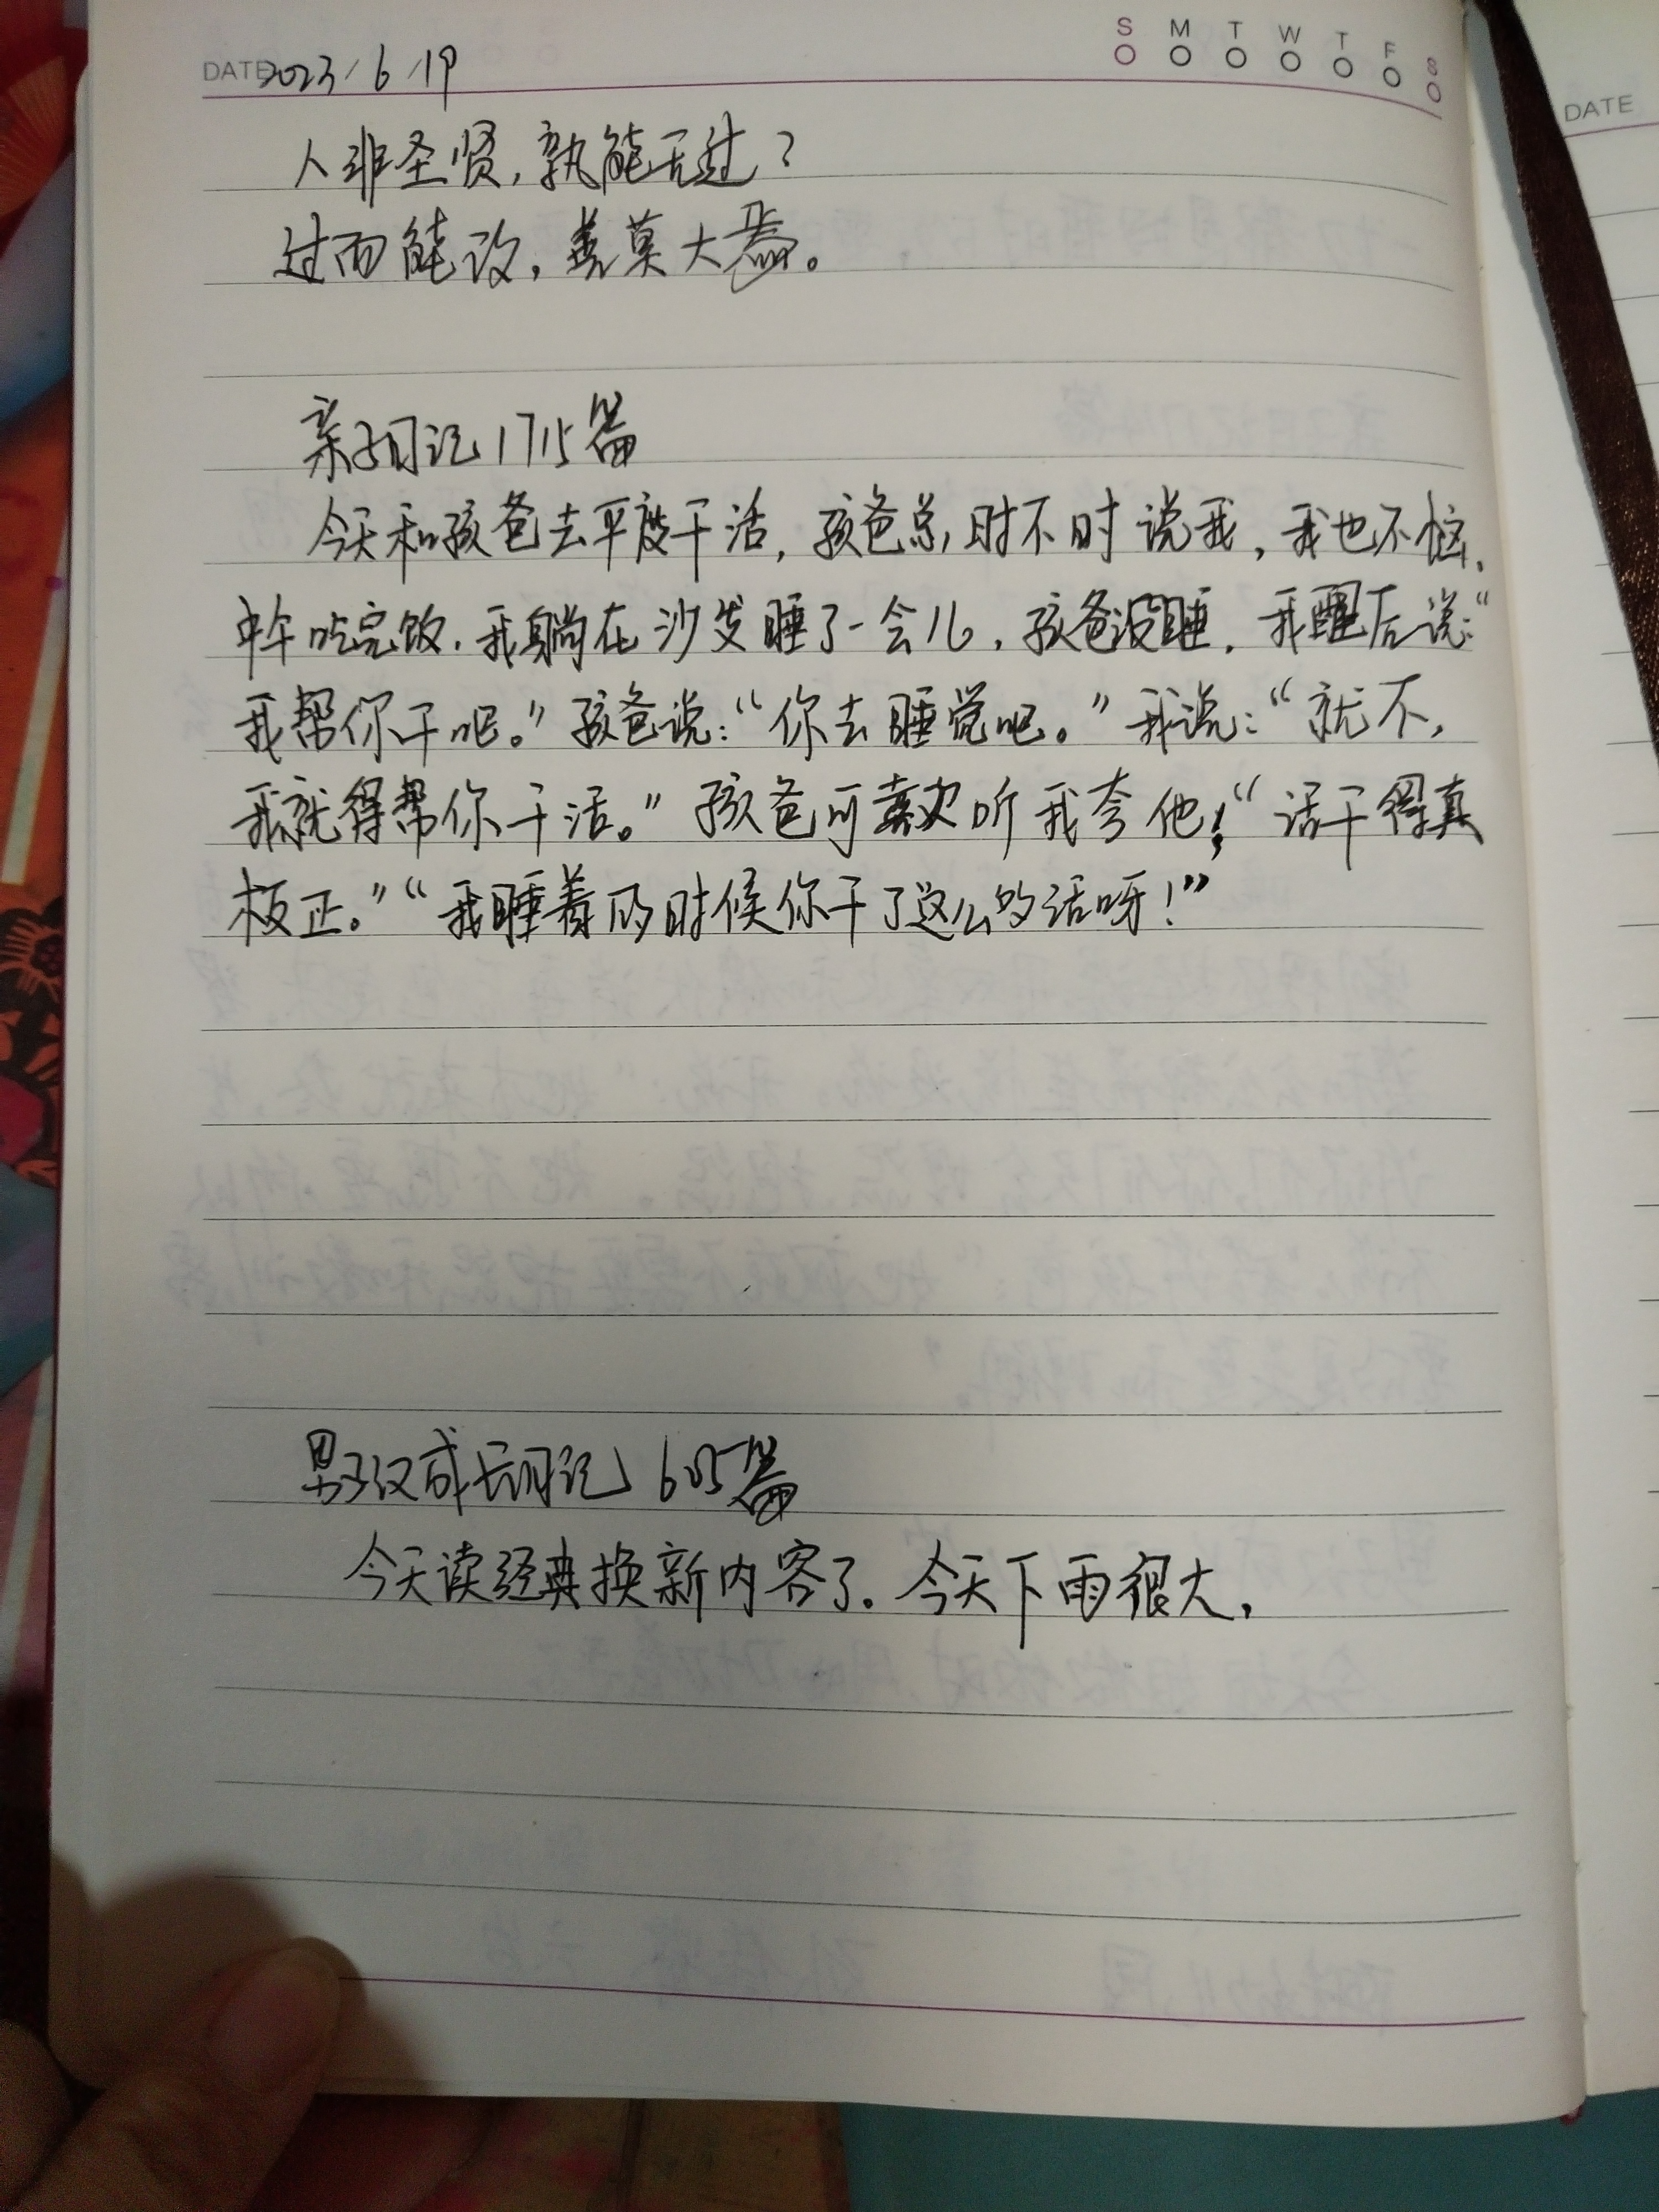 S M T W T F S
DATE 2023/6/19
人非圣贤,孰能无过?
过而能改,善莫大焉。
亲子日记1715篇
今天和孩爸去平度干活,孩爸总时不时说我,我也不恼.
中午吃完饭.我躺在沙发睡了一会儿,孩爸没睡.我醒后说:“
我帮你干吧。”孩爸说:“你去睡觉吧。”我说:“就不,
我就得帮你干活。”孩爸可喜欢听我夸他:“活干得真
板正。”“我睡着的时候你干了这么的活呀!”
男子汉成长日记605篇
今天读经典换新内容了.今天下雨很大,
DATE